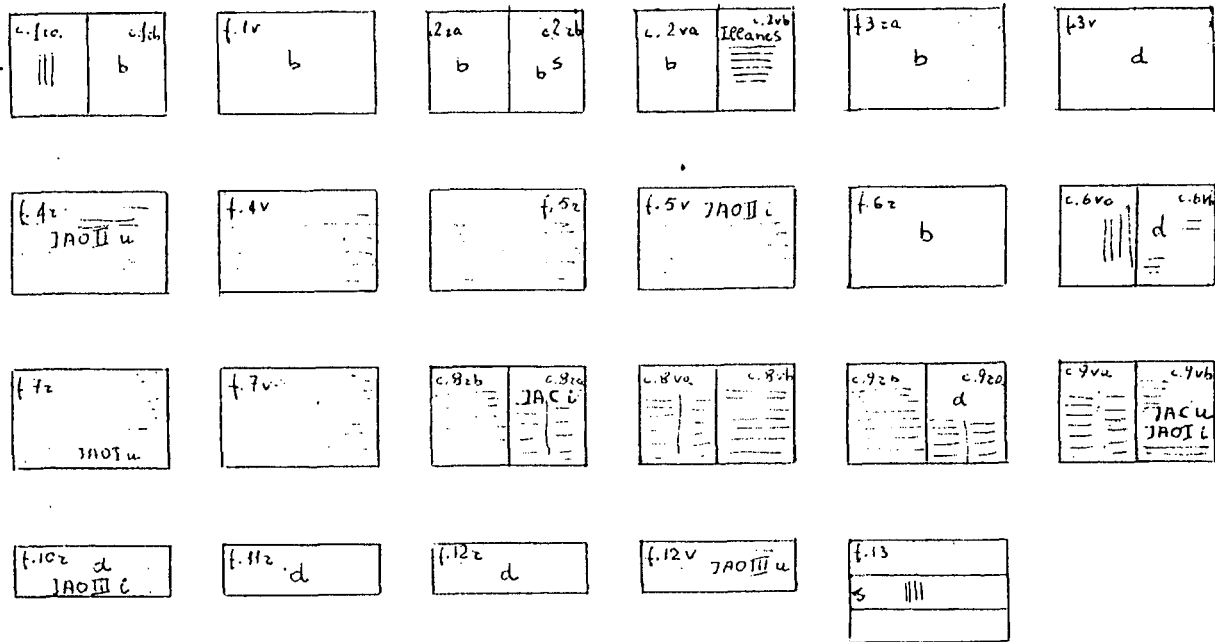 c.1ra c.1rb
b
f.1v
b
2ra c.2rb
b b s
c.2va c.2vb
b Illanes
f.3ra
b
f.3v
d
f.4r
JAOII u
f.4v
f.5r
f.5v JAOII i
f.6r
b
c.6va c.6vb
d
f.7r
JAOI u
f.7v
c.8rb c.8ra
JAC i
c.8va c.8vb
c.9rb c.9ra
d
c.9va c.9vb
JAC u
JAOI i
f.10r d
JAOIII i
f.11r d
f.12r
d
f.12v JAOIII u
f.13
s